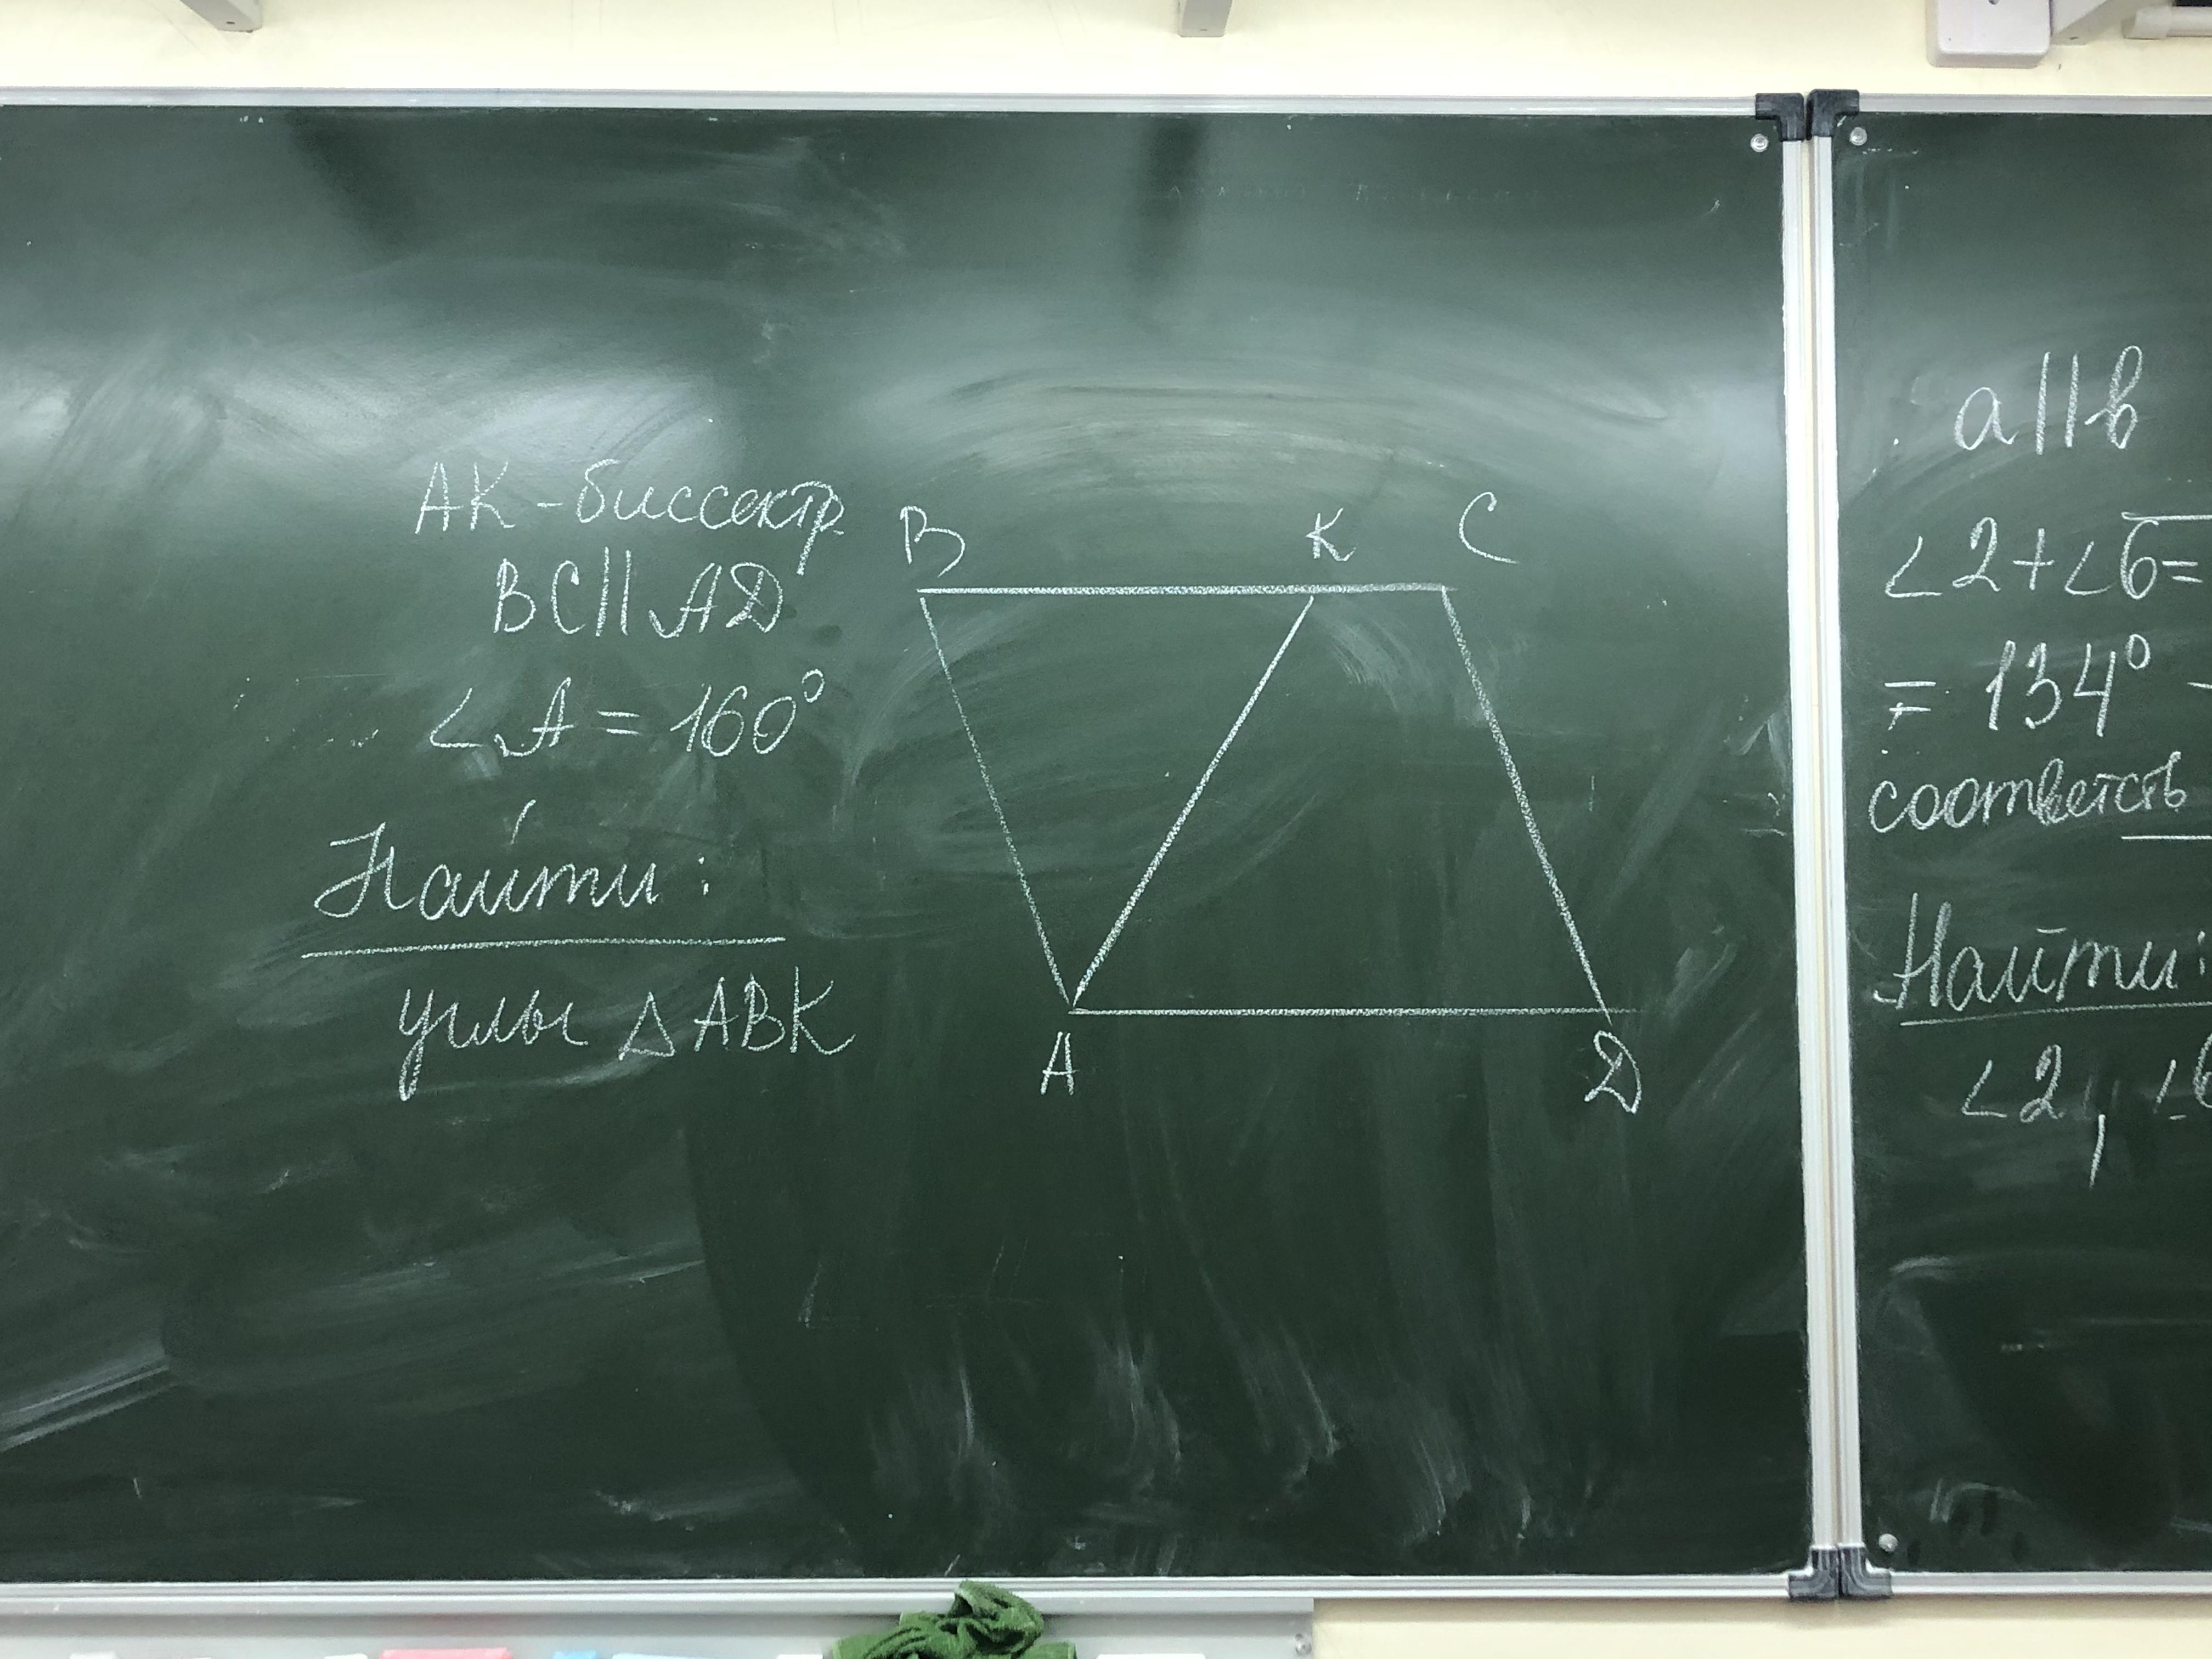 АК - биссектр.
ВС || АD
∠А = 160°
Найти:
углы △ АВК
В К С
А D
а || в
∠2 + ∠6 =
= 134°
соответств
Найти:
∠2, ∠6